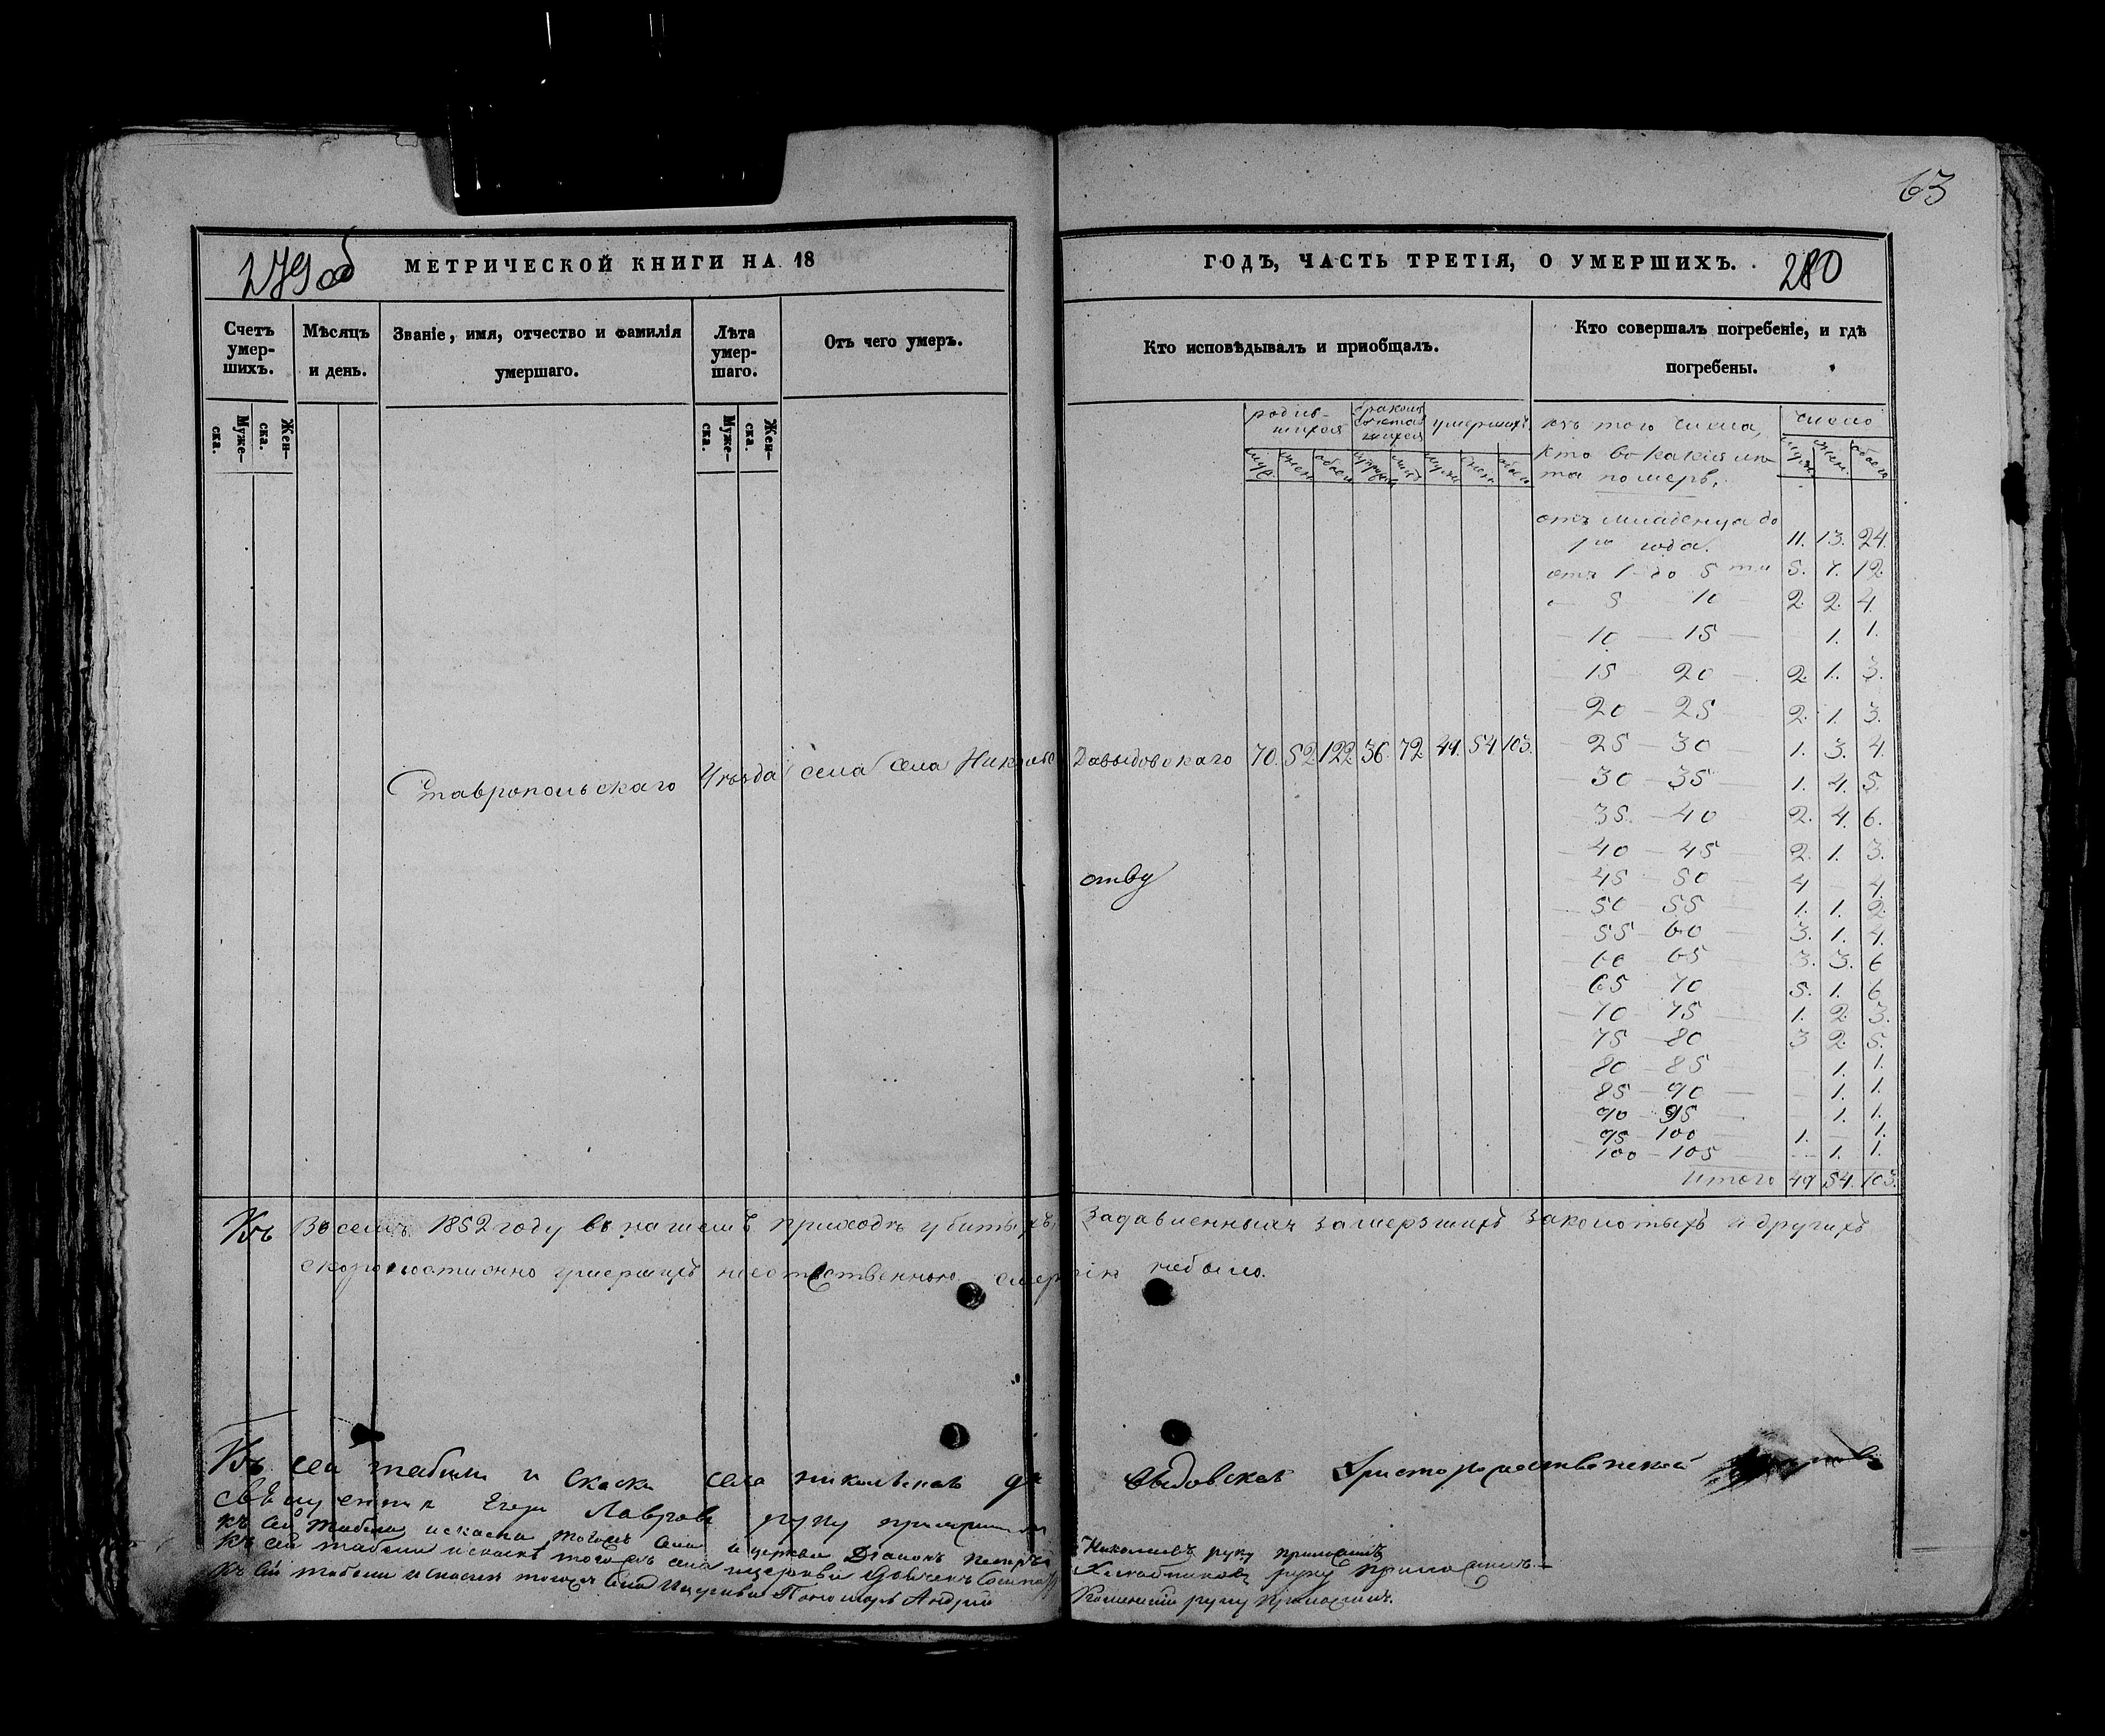 63
279 об
МЕТРИЧЕСКОЙ КНИГИ НА 18
ГОДЪ, ЧАСТЬ ТРЕТІЯ, О УМЕРШИХЪ.
280
Счетъ умер-шихъ.
Мѣсяцъ и день.
Званіе, имя, отчество и фамилія умершаго.
Лѣта умер-шаго.
Отъ чего умеръ.
Кто исповѣдывалъ и приобщалъ.
Кто совершалъ погребеніе, и гдѣ погребены.
Муже-ска.
Жен-ска.
Муже-ска.
Жен-ска.
родив-шихся
умершихъ
изъ того числа, кто въ какія лѣ-та померъ.
число
муж. жен. обоего
отъ младенца до 1го года. 11. 13. 24.
отъ 1 до 5 ти 5. 7. 12.
— 5 — 10 — 2. 2. 4.
— 10 — 15 — — 1. 1.
— 15 — 20 — 2. 1. 3.
— 20 — 25 — 2. 1. 3.
— 25 — 30 — 1. 3. 4.
— 30 — 35 — 1. 4. 5.
— 35. — 40 — 2. 4. 6.
— 40 — 45 — 2. 1. 3.
— 45 — 50 — 4 — 4.
— 50 — 55 — 1. 1. 2.
— 55 — 60 — 3. 1. 4.
— 60 — 65 — 3. 3. 6
— 65 — 70 — 5. 1. 6
— 70 — 75 — 1. 2. 3.
— 75 — 80 — 3 2. 5.
— 80 — 85 — — 1. 1.
— 85 — 90 — — 1. 1.
— 90 — 95 — — 1. 1.
— 95 — 100 — 1. — 1.
— 100 — 105 — — 1. 1.
Итого 49 54. 103.
Ставропольскаго Уѣзда села села Николо Давыдовскаго 70. 52. 122. 36. 72. 49. 54. 103.
Въ семъ 1852 году въ нашемъ приходѣ убитыхъ, задавленныхъ замерзшихъ заколотыхъ и другихъ
скоропостижно умершихъ неестественною смертію небыло.
Къ сей табели и сказки села
Священникъ Егоръ Лавровъ руку приложилъ
Къ сей табели и сказки тогожъ села и церкви Діаконъ Петръ Николаевъ руку приложилъ
Къ сей табели и сказки тогожъ села и церкви руку приложилъ.—
Къ сей табели и сказки тогожъ села и церкви Пономарь Андрей руку приложилъ.